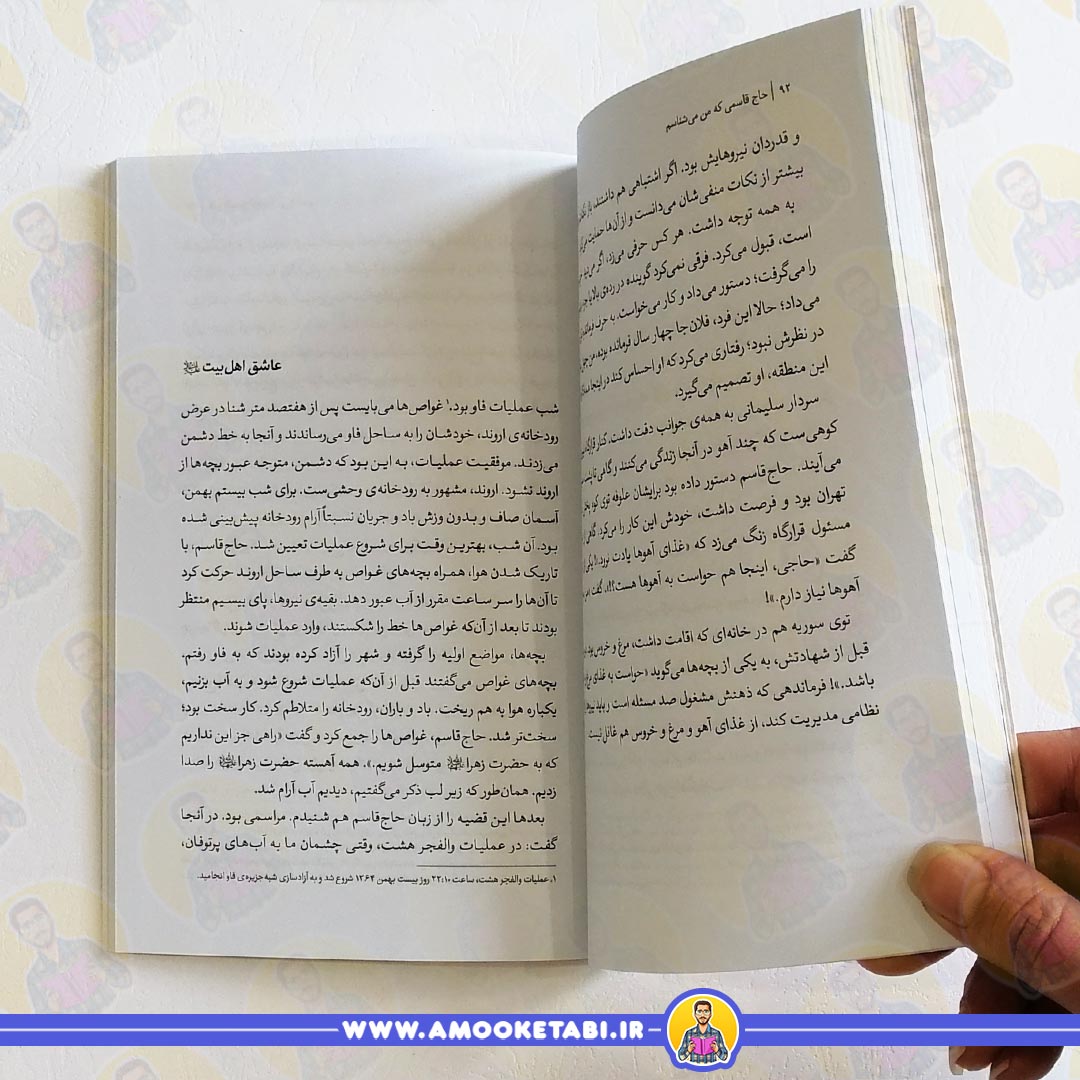 ۹۲ | حاج قاسمی که من می‌شناسم
و قدردان نیروهایش بود. اگر اشتباهی هم داشتند، باز
بیشتر از نکات منفی‌شان می‌دانست و از آن‌ها حمایت
به همه توجه داشت. هر کس حرفی می‌زد، اگر
است، قبول می‌کرد. فرقی نمی‌کرد گوینده در رده‌ی بالا
را می‌گرفت؛ دستور می‌داد و کار می‌خواست. به حرف
می‌داد؛ حالا این فرد، فلان‌جا چهار سال فرمانده بوده،
در نظرش نبود؛ رفتاری می‌کرد که او احساس کند در اینجا
این منطقه، او تصمیم می‌گیرد.
سردار سلیمانی به همه‌ی جوانب دقت داشت. کنار
کوهی‌ست که چند آهو در آنجا زندگی می‌کنند و گاهی تا
می‌آیند. حاج‌قاسم دستور داده بود برایشان علوفه توی کوه
تهران بود و فرصت داشت، خودش این کار را می‌کرد. گاهی
مسئول قرارگاه زنگ می‌زد که «غذای آهوها یادت نرود.»! یکی
گفت «حاجی، اینجا هم حواست به آهوها هست؟!». گفت
آهوها نیاز دارم.»!
توی سوریه هم در خانه‌ای که اقامت داشت، مرغ و خروس بود.
قبل از شهادتش، به یکی از بچه‌ها می‌گوید «حواست به غذای
باشد.»! فرماندهی که ذهنش مشغول صد مسئله است و باید
نظامی مدیریت کند، از غذای آهو و مرغ و خروس هم غافل نیست
عاشق اهل‌بیت
شب عملیات فاو بود.۱ غواص‌ها می‌بایست پس از هفتصد متر شنا در عرض
رودخانه‌ی اروند، خودشان را به ساحل فاو می‌رساندند و آنجا به خط دشمن
می‌زدند. موفقیت عملیات، به این بود که دشمن، متوجه عبور بچه‌ها از
اروند نشود. اروند، مشهور به رودخانه‌ی وحشی‌ست. برای شب بیستم بهمن،
آسمان صاف و بدون وزش باد و جریان نسبتاً آرام رودخانه پیش‌بینی شده
بود. آن شب، بهترین وقت برای شروع عملیات تعیین شد. حاج‌قاسم، با
تاریک شدن هوا، همراه بچه‌های غواص به طرف ساحل اروند حرکت کرد
تا آن‌ها را سر ساعت مقرر از آب عبور دهد. بقیه‌ی نیروها، پای بیسیم منتظر
بودند تا بعد از آن‌که غواص‌ها خط را شکستند، وارد عملیات شوند.
بچه‌ها، مواضع اولیه را گرفته و شهر را آزاد کرده بودند که به فاو رفتم.
بچه‌های غواص می‌گفتند قبل از آن‌که عملیات شروع شود و به آب بزنیم،
یکباره هوا به هم ریخت. باد و باران، رودخانه را متلاطم کرد. کار سخت بود؛
سخت‌تر شد. حاج‌قاسم، غواص‌ها را جمع کرد و گفت «راهی جز این نداریم
که به حضرت زهرا متوسل شویم.». همه آهسته حضرت زهرا را صدا
زدیم. همان‌طور که زیر لب ذکر می‌گفتیم، دیدیم آب آرام شد.
بعدها این قضیه را از زبان حاج‌قاسم هم شنیدم. مراسمی بود. در آنجا
گفت: در عملیات والفجر هشت، وقتی چشمان ما به آب‌های پرتوفان،
۱. عملیات والفجر هشت، ساعت ۲۲:۱۰ روز بیست بهمن ۱۳۶۴ شروع شد و به آزادسازی شبه جزیره‌ی فاو انجامید.
WWW.AMOOKETABI.IR